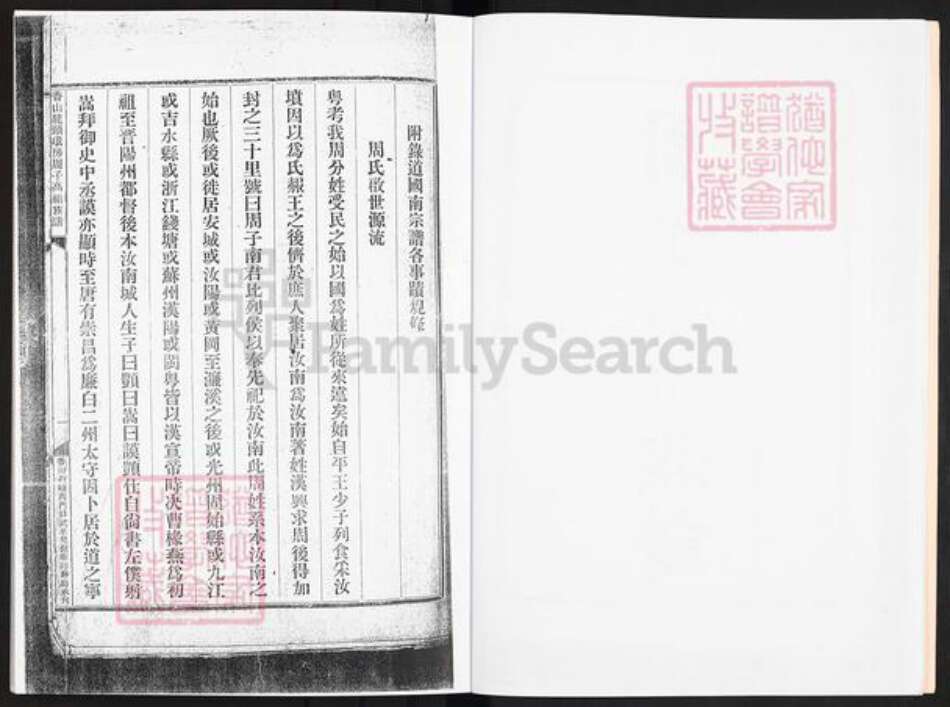 附錄道國南宗譜各事蹟
周氏啟世源流
粤考我周分姓受民之始以國爲姓所從來遠矣始自平王少子列食采汝
墳因以爲氏赧王之後儕於庶人聚居汝南爲汝南著姓漢興求周後得加
封之三十里號曰周子南君比列侯以奉先祀於汝南此周姓系本汝南之
始也厥後或徙居安城或汝陽或黃岡至濂溪之後或光州固始縣或九江
或吉水縣或浙江錢塘或蘇州漢陽或閩粤皆以漢宣帝時决曹椽燕爲初
祖至晋陽州都督後本汝南城人生子曰顗曰嵩曰謨顗仕自尙書左僕射
嵩拜御史中丞謨亦顯時至唐有崇昌爲廉白二州太守因卜居於道之寧
香山
族譜
一
FamilySearch
猶他家
譜學會
收藏
猶他家
譜學會
收藏